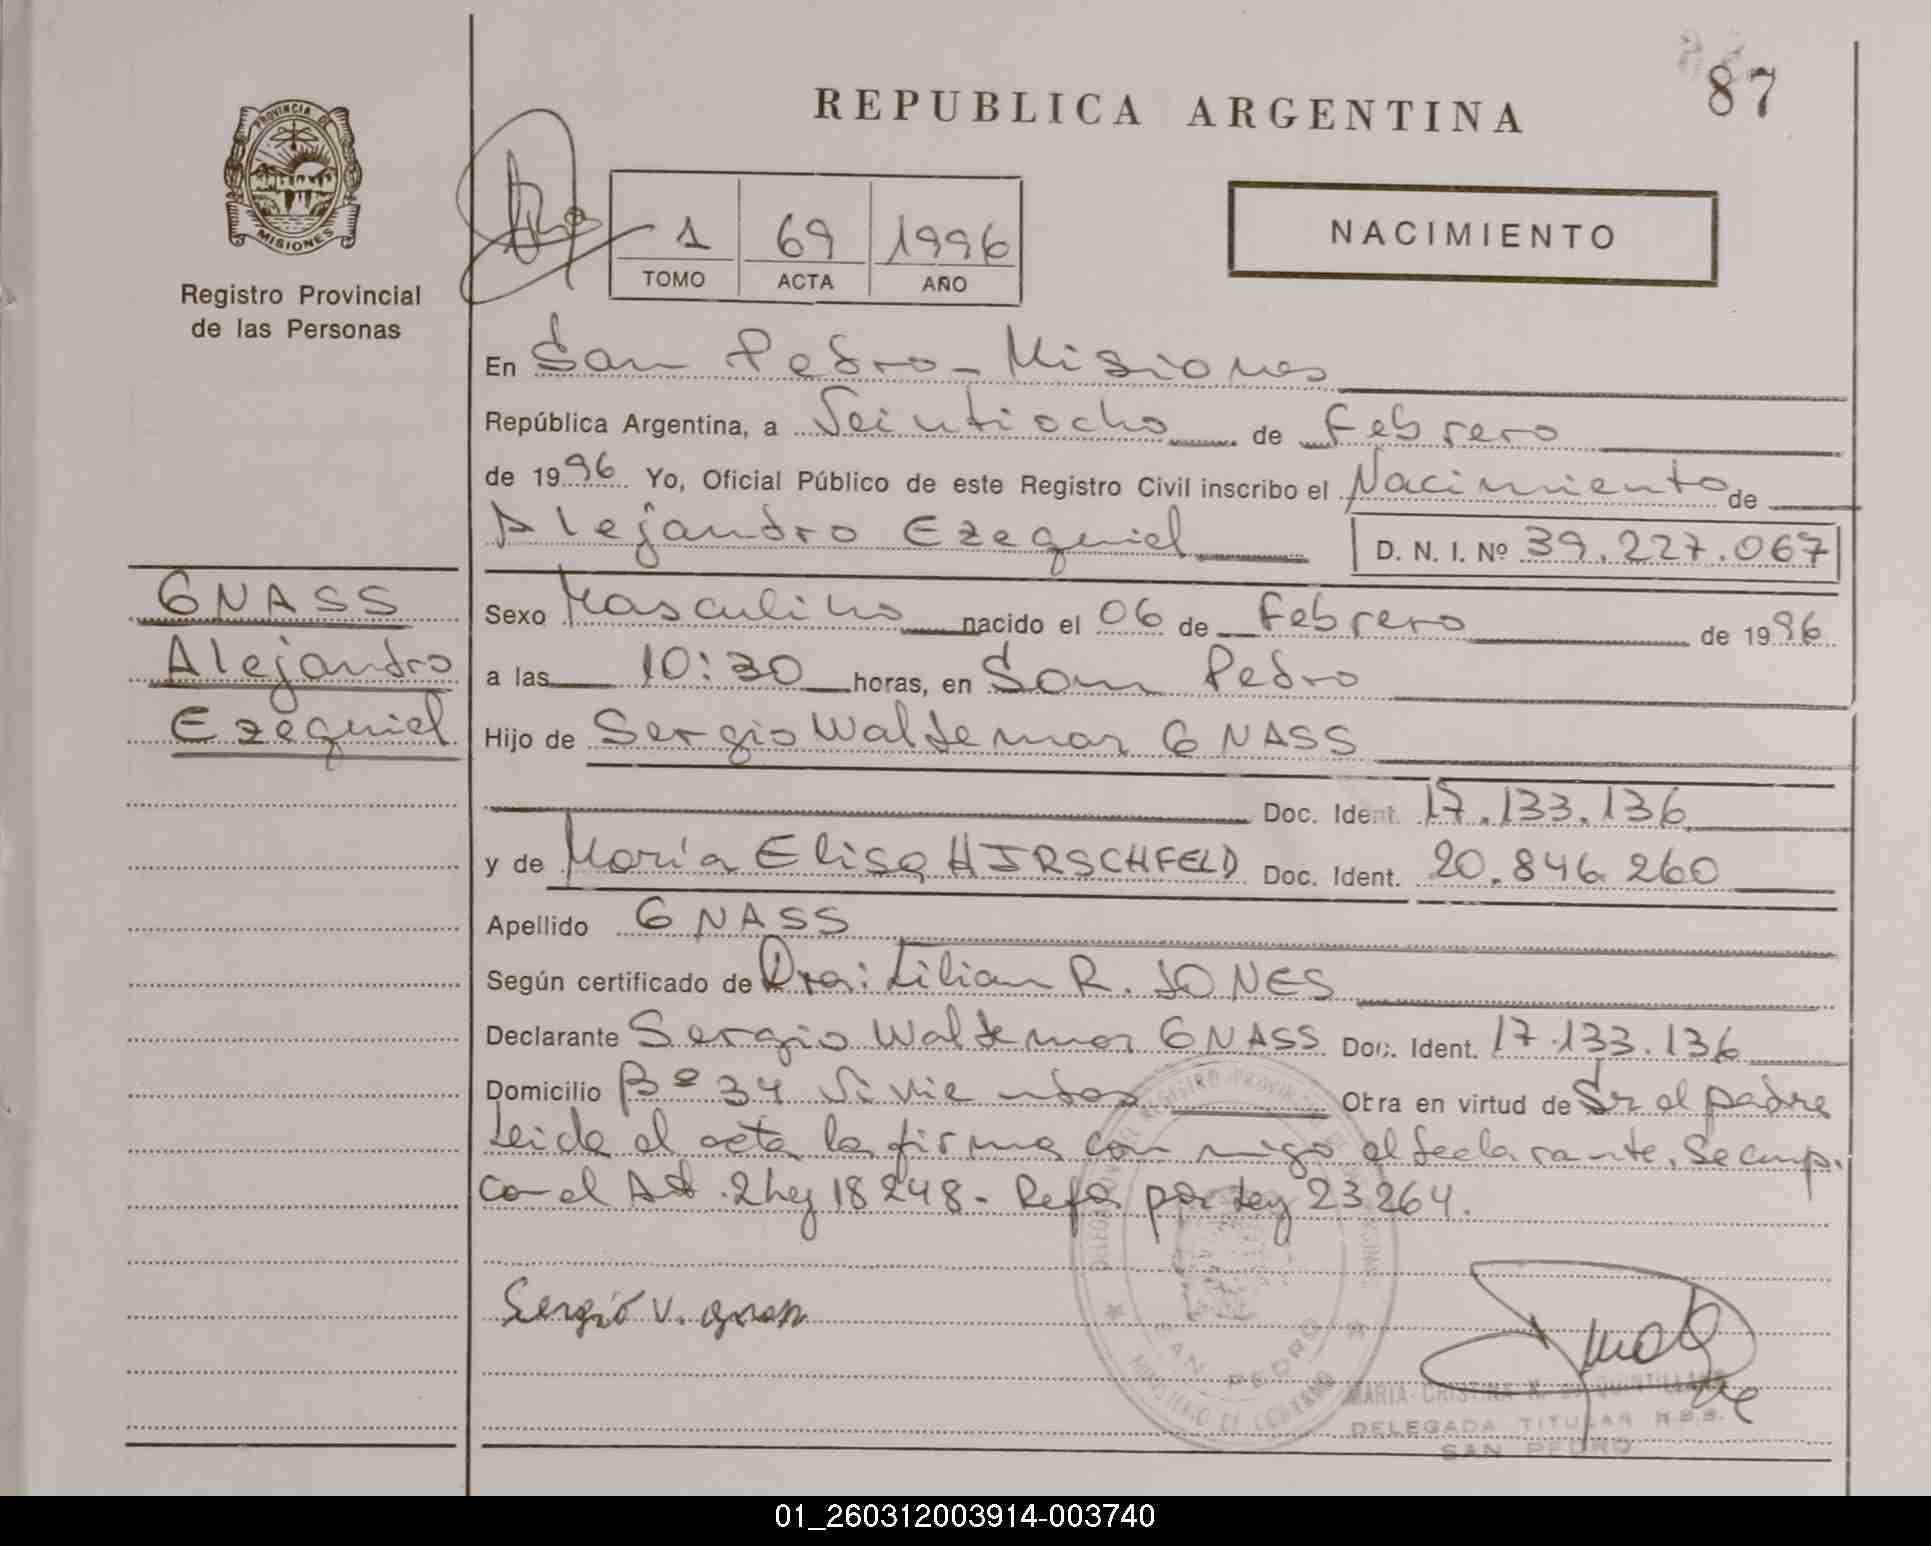 87
REPUBLICA ARGENTINA
PROVINCIA DE
MISIONES
Registro Provincial
de las Personas
1 69 1996
TOMO ACTA AÑO
NACIMIENTO
En San Pedro - Misiones
República Argentina, a Veintiocho de Febrero
de 1996 Yo, Oficial Público de este Registro Civil inscribo el Nacimiento de
Alejandro Ezequiel D. N. I. Nº 39.227.067
GNASS
Alejandro
Ezequiel
Sexo Masculino nacido el 06 de Febrero de 1996
a las 10:30 horas, en San Pedro
Hijo de Sergio Waldemar GNASS
Doc. Ident. 17.133.136
y de María Elisa HIRSCHFELD Doc. Ident. 20.846.260
Apellido GNASS
Según certificado de Dra: Lilian R. JONES
Declarante Sergio Waldemar GNASS Doc. Ident. 17.133.136
Domicilio Bº 34 Viviendas Obra en virtud de Sr el padre
Leida el acta la firma con migo el declarante. Se cump.
con el Art. 2 Ley 18248 - Refo por Ley 23264.
Sergio V. Gnass
SAN PEDRO
MINISTERIO DE GOBIERNO
MARIA CRISTINA N. DE QUINTILLAN
DELEGADA TITULAR
SAN PEDRO
01_260312003914-003740